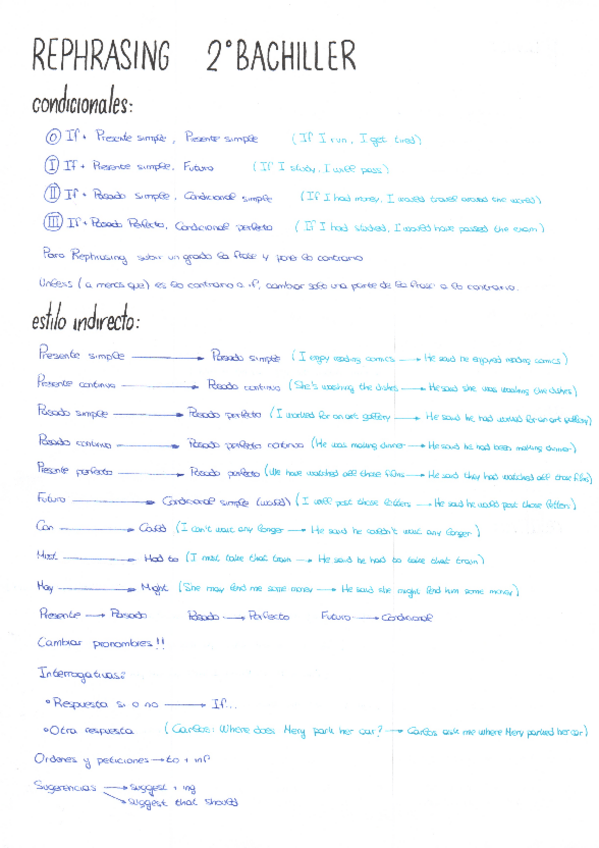 REPHRASING 2º BACHILLER
condicionales:
0 If + Presente simple, Presente simple (If I run, I get tired)
I If + Presente simple, Futuro (If I study, I will pass)
II If + Pasado simple, Condicional simple (If I had money, I would travel around the world)
III If + Pasado Perfecto, Condicional perfecto (If I had studied, I would have passed the exam)
Para Rephrasing subir un grado la frase y pone lo contrario
Unless (a menos que) es lo contrario a if, cambiar solo una parte de la frase a lo contrario.
estilo indirecto:
Presente simple → Pasado simple (I enjoy reading comics → He said he enjoyed reading comics)
Presente continuo → Pasado continuo (She's washing the dishes → He said she was washing the dishes)
Pasado simple → Pasado perfecto (I worked for an art gallery → He said he had worked for an art gallery)
Pasado continuo → Pasado perfecto continuo (He was making dinner → He said he had been making dinner)
Presente perfecto → Pasado perfecto (We have watched all those films → He said they had watched all those films)
Futuro → Condicional simple (would) (I will post those letters → He said he would post those letters)
Can → Could (I can't wait any longer → He said he couldn't wait any longer)
Must → Had to (I must take that train → He said he had to take that train)
May → Might (She may lend me some money → He said she might lend him some money)
Presente → Pasado Pasado → Perfecto Futuro → Condicional
Cambiar pronombres!!
Interrogativas:
• Respuesta si o no → If...
• Otra respuesta (Carlos: Where does Mery park her car? → Carlos ask me where Mery parked her car)
Ordenes y peticiones → to + inf
Sugerencias → suggest + ing
→ suggest that should